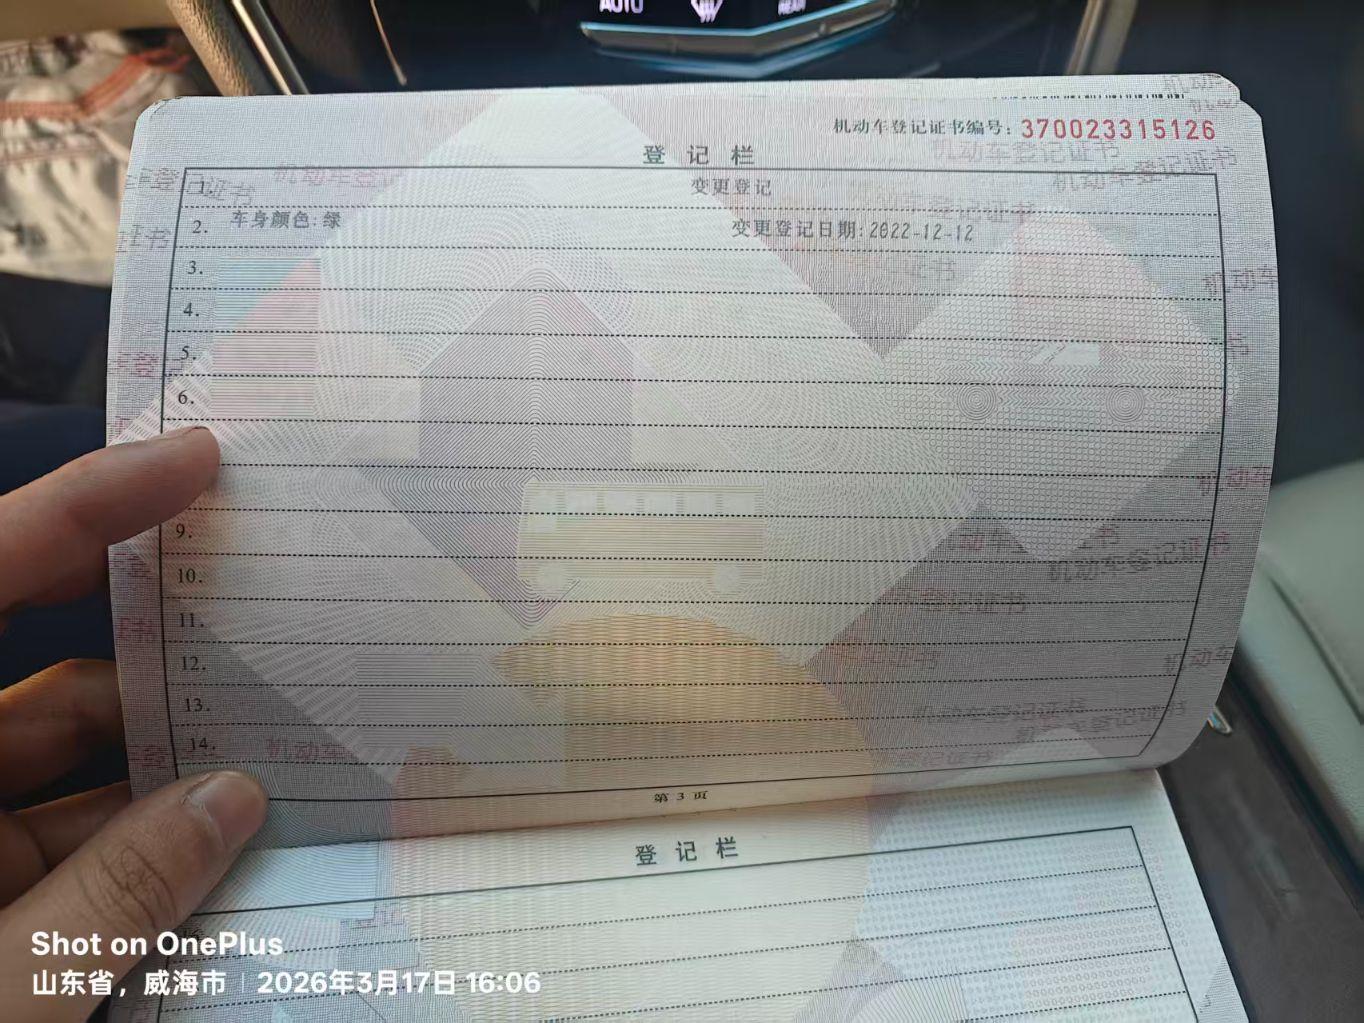 AUTO
REAR
机动车登记证书编号：370023315126
登记栏
1. 变更登记
2. 车身颜色:绿 变更登记日期:2022-12-12
3.
4.
5.
6.
9.
10.
11.
12.
13.
14.
第 3 页
登记栏
Shot on OnePlus
山东省，威海市 | 2026年3月17日 16:06